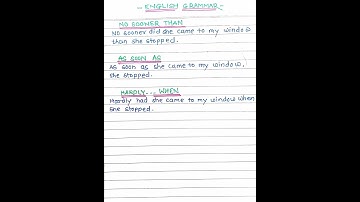 - ENGLISH GRAMMAR -
NO SOONER THAN
No sooner did she came to my window
than she stopped.
AS SOON AS
As soon as she came to my window,
she stopped.
HARDLY... WHEN
Hardly had she came to my window when
she stopped.